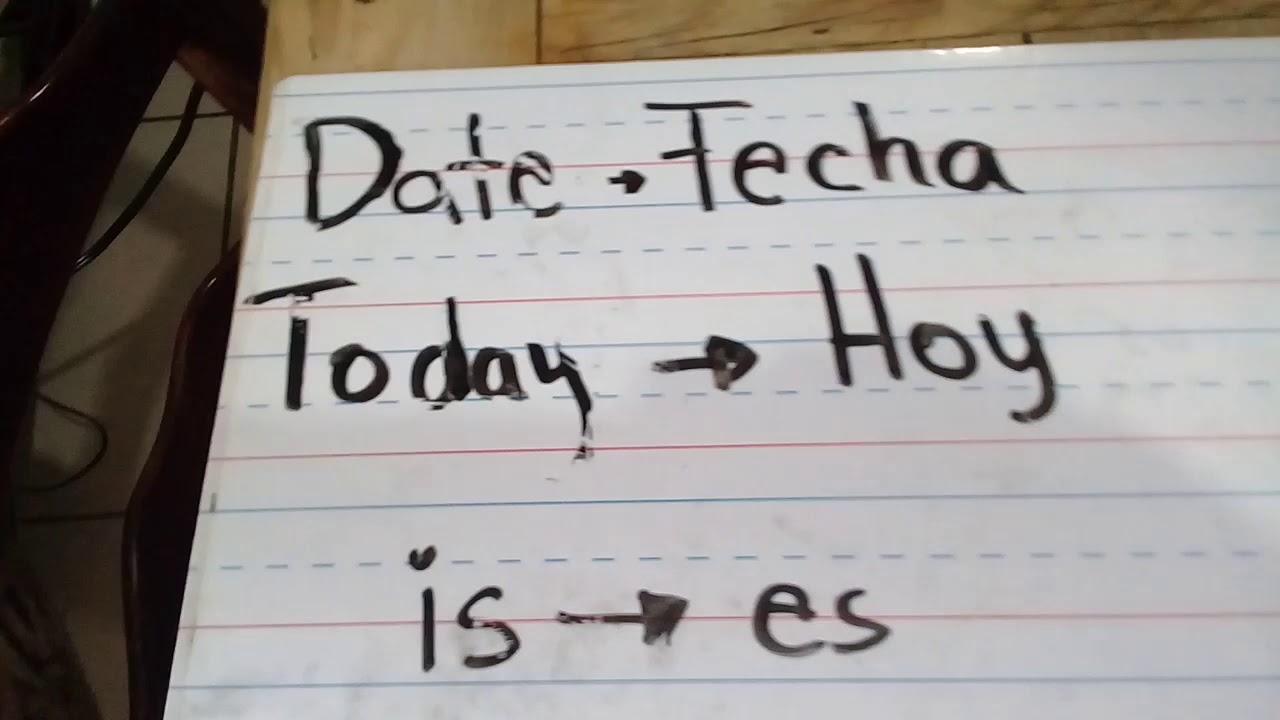 Date → Fecha
Today → Hoy
is → es